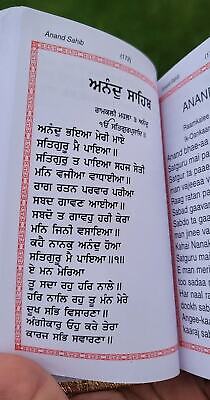 Anand Sahib
(179)
ਅਨੰਦੁ ਸਾਹਿਬ
ਰਾਮਕਲੀ ਮਹਲਾ ੩ ਅਨੰਦੁ
ੴ ਸਤਿਗੁਰਪ੍ਰਸਾਦਿ॥
ਅਨੰਦੁ ਭਇਆ ਮੇਰੀ ਮਾਏ
ਸਤਿਗੁਰੂ ਮੈ ਪਾਇਆ॥
ਸਤਿਗੁਰੁ ਤ ਪਾਇਆ ਸਹਜ ਸੇਤੀ
ਮਨਿ ਵਜੀਆ ਵਾਧਾਈਆ॥
ਰਾਗ ਰਤਨ ਪਰਵਾਰ ਪਰੀਆ
ਸਬਦ ਗਾਵਣ ਆਈਆ॥
ਸਬਦੋ ਤ ਗਾਵਹੁ ਹਰੀ ਕੇਰਾ
ਮਨਿ ਜਿਨੀ ਵਸਾਇਆ॥
ਕਹੈ ਨਾਨਕੁ ਅਨੰਦੁ ਹੋਆ
ਸਤਿਗੁਰੂ ਮੈ ਪਾਇਆ॥੧॥
ਏ ਮਨ ਮੇਰਿਆ
ਤੂ ਸਦਾ ਰਹੁ ਹਰਿ ਨਾਲੇ॥
ਹਰਿ ਨਾਲਿ ਰਹੁ ਤੂ ਮੰਨ ਮੇਰੇ
ਦੂਖ ਸਭਿ ਵਿਸਾਰਣਾ॥
ਅੰਗੀਕਾਰੁ ਓਹੁ ਕਰੇ ਤੇਰਾ
ਕਾਰਜ ਸਭਿ ਸਵਾਰਣਾ॥
(178)
ANAND
Raamkalee
Ik-Oankaar
Anand bhae-aa
Satguru mai paa
Satgur ta paa
Man
Raag ratan
Sabad gaavan
Sabdo
Man
Kahai Nanak
Satguru mai
Ay man
too sadaa
Har
Dookh
Angee-kaa
Kaaraj sa